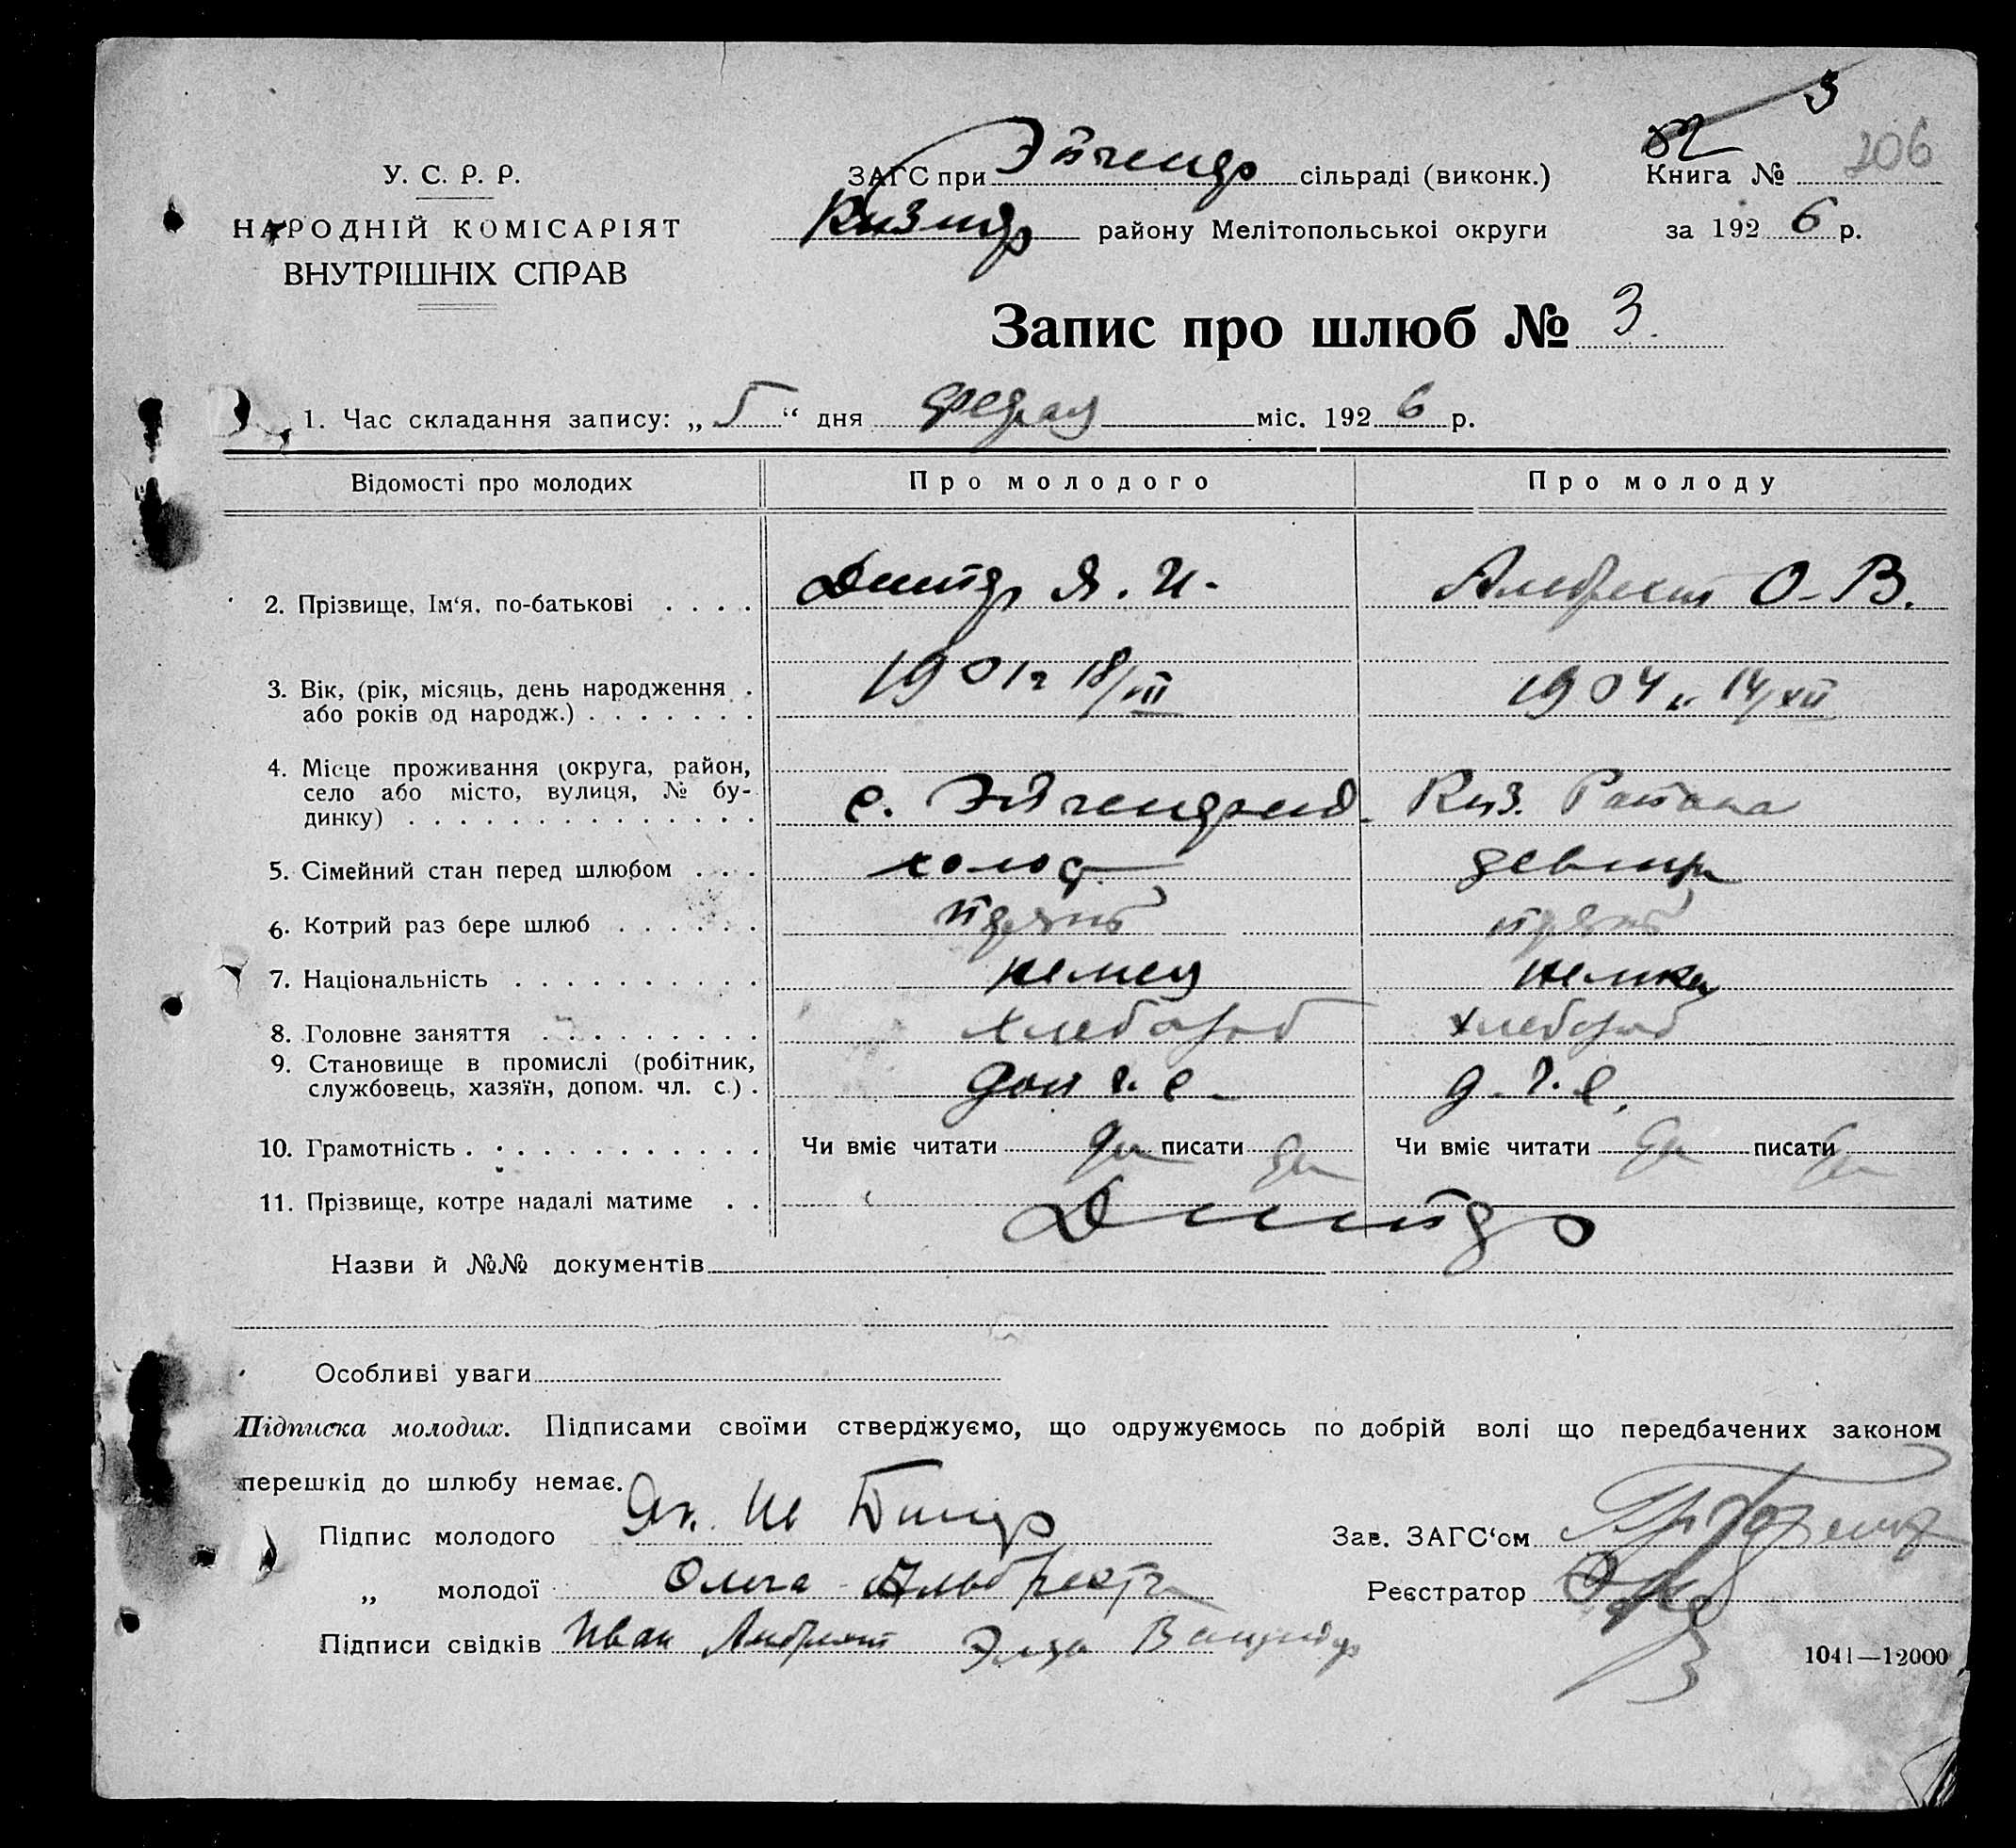 3
У. С. Р. Р.
НАРОДНІЙ КОМІСАРІЯТ
ВНУТРІШНІХ СПРАВ
ЗАГС при сільраді (виконк.)
району Мелітопольської округи
Книга № 206
за 1926 р.
Запис про шлюб № 3
1. Час складання запису: „5“ дня міс. 1926 р.
Відомості про молодих Про молодого Про молоду
2. Прізвище, Ім‘я, по-батькові . . . . Я. И. Альбрехт О. В.
3. Вік, (рік, місяць, день народження .
або років од народж.) . . . . . . . 1901 г 18/VII 1904 „ 14/XII
4. Місце проживання (округа, район,
село або місто, вулиця, № бу-
динку) . . . . . . . . . . . . . . с. Киз.
5. Сімейний стан перед шлюбом . . . холост девица
6. Котрий раз бере шлюб . . . . . .
7. Національність . . . . . . . . . . немец немка
8. Головне заняття . . . . . . . . . хлебороб хлебороб
9. Становище в промислі (робітник,
службовець, хазяїн, допом. чл. с.) . доп. г. с. д. г. с.
10. Грамотність . . . . . . . . . . . . Чи вміє читати да писати да Чи вміє читати да писати да
11. Прізвище, котре надалі матиме . .
Назви й №№ документів
Особливі уваги
Підписка молодих. Підписами своїми стверджуємо, що одружуємось по добрій волі що передбачених законом
перешкід до шлюбу немає.
Підпис молодого Як.
Зав. ЗАГС‘ом
„ молодої Ольга Альбрехт
Реєстратор
Підписи свідків Иван Альбрехт
1041—12000